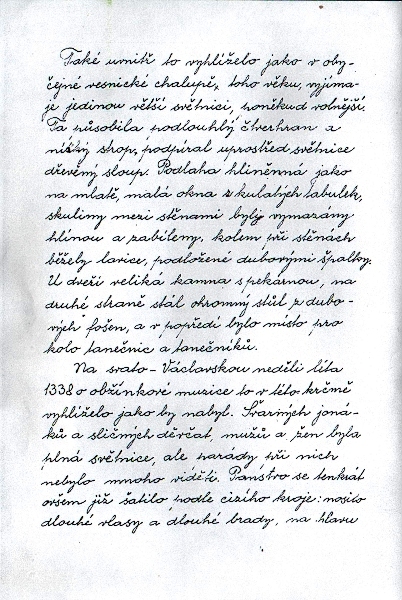 Také uvnitř to vyhlíželo jako v oby-
čejné vesnické chalupě, toho věku, vyjíma-
je jedinou větší světnici, poněkud volnější.
Ta působila podlouhlý čtverhran a
nízký strop, podpíral uprostřed světnice
dřevěný sloup. Podlaha hliněnná jako
na mlatě, malá okna z kulatých tabulek,
skuliny mezi stěnami byly vymazány
hlínou a zabíleny, kolem při stěnách
běžely lavice, podložené dubovými špalky.
U dveří veliká kamna s pekárnou, na
druhé straně stál ohromný stůl z dubo-
vých fošen, a v popředí bylo místo pro
kolo tanečnic a tanečníků.
Na svato-Václavskou neděli léta
1338 o obžínkové muzice to v této krčmě
vyhlíželo jako by nabyl. Švarných joná-
ků a sličných děvčat, mužů a žen byla
plná světnice, ale parády při nich
nebylo mnoho viděti. Panstvo se tenkrát
ovšem již šatilo podle cizího kroje: nosilo
dlouhé vlasy a dlouhé brady, na hlavu